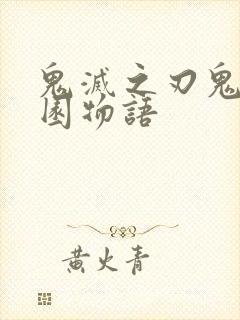 鬼滅之刃鬼
園物語
黃火青